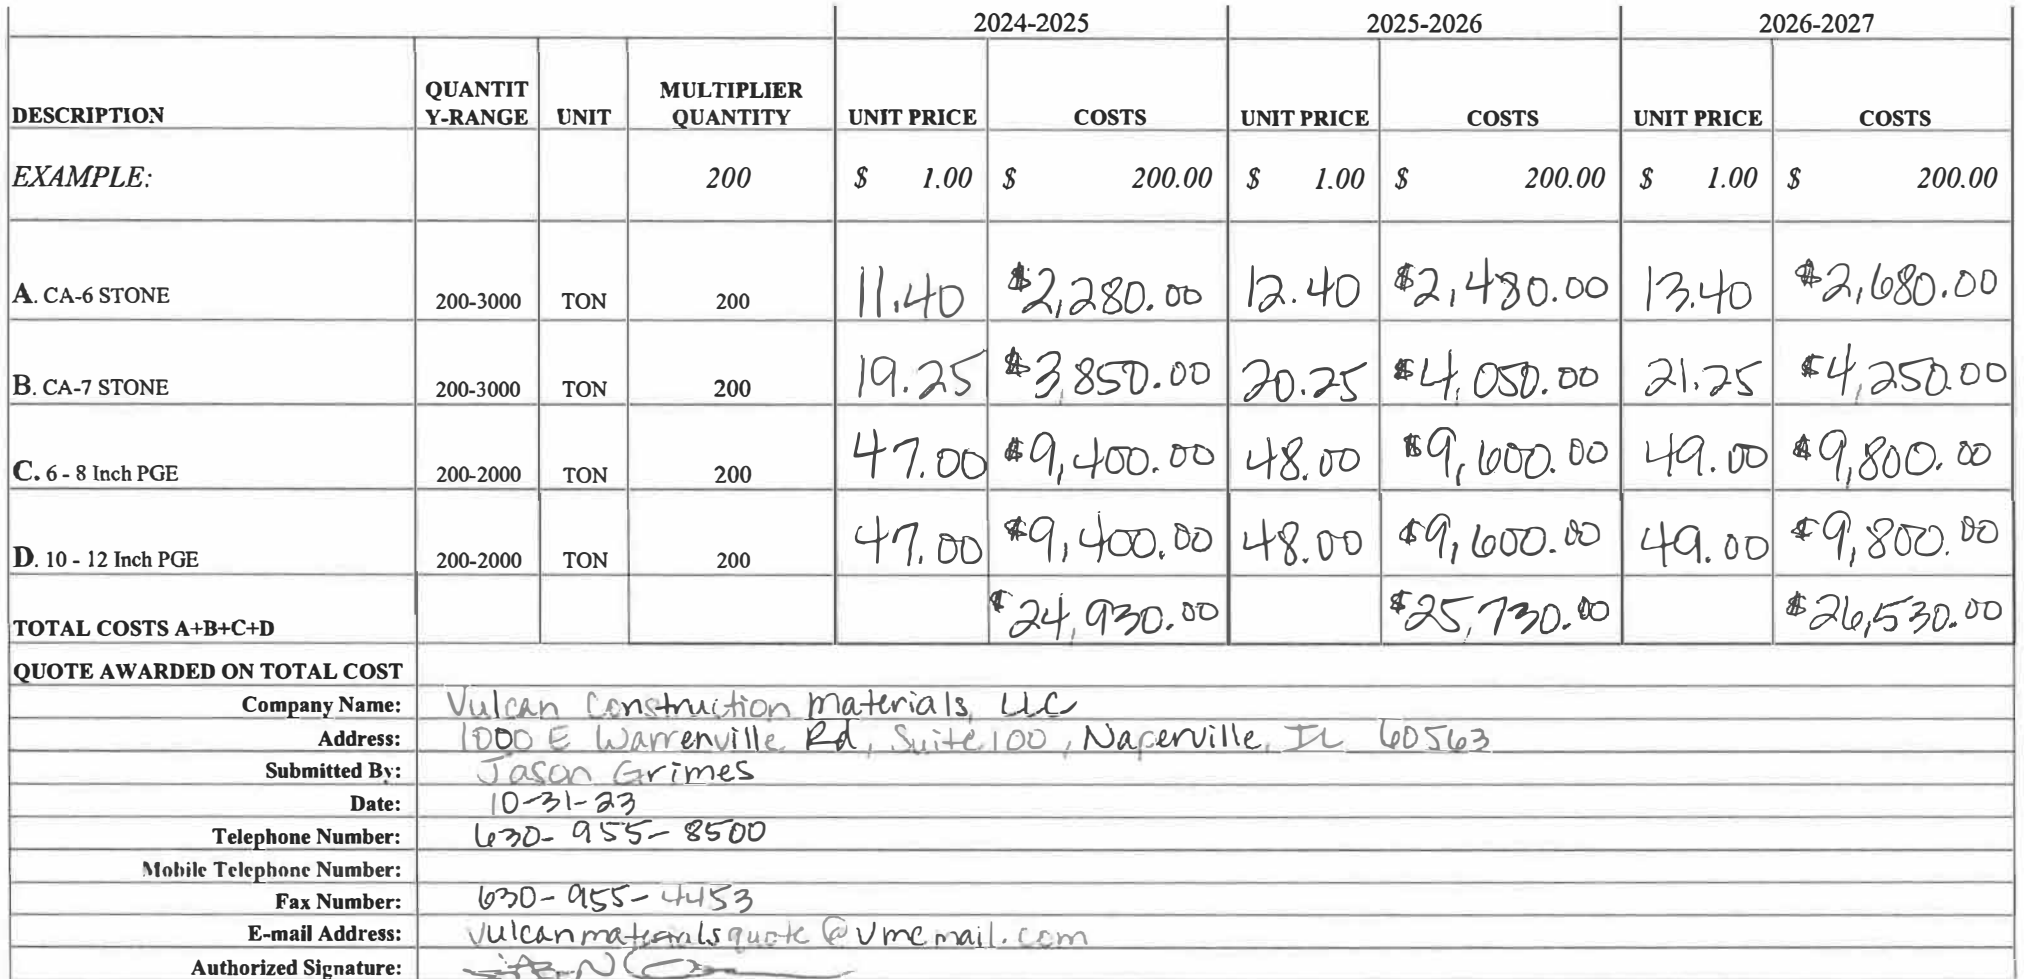 2024-2025 2025-2026 2026-2027
DESCRIPTION QUANTITY-RANGE UNIT MULTIPLIER QUANTITY UNIT PRICE COSTS UNIT PRICE COSTS UNIT PRICE COSTS
EXAMPLE: 200 $ 1.00 $ 200.00 $ 1.00 $ 200.00 $ 1.00 $ 200.00
A. CA-6 STONE 200-3000 TON 200 11.40 $2,280.00 12.40 $2,480.00 13.40 $2,680.00
B. CA-7 STONE 200-3000 TON 200 19.25 $3,850.00 20.25 $4,050.00 21.25 $4,250.00
C. 6 - 8 Inch PGE 200-2000 TON 200 47.00 $9,400.00 48.00 $9,600.00 49.00 $9,800.00
D. 10 - 12 Inch PGE 200-2000 TON 200 47.00 $9,400.00 48.00 $9,600.00 49.00 $9,800.00
TOTAL COSTS A+B+C+D $24,930.00 $25,730.00 $26,530.00
QUOTE AWARDED ON TOTAL COST
Company Name: Vulcan Construction Materials, LLC
Address: 1000 E Warrenville Rd, Suite 100, Naperville, IL 60563
Submitted By: Jason Grimes
Date: 10-31-23
Telephone Number: 630-955-8500
Mobile Telephone Number:
Fax Number: 630-955-4453
E-mail Address: vulcanmaterialsquote@vmcmail.com
Authorized Signature: